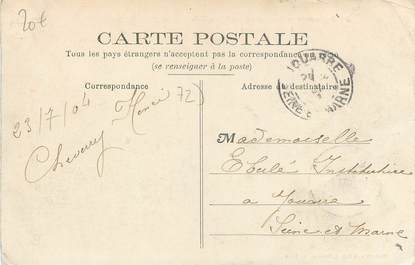 20€
CARTE POSTALE
Tous les pays étrangers n'acceptent pas la correspondance
(se renseigner à la poste)
JOUARRE
SEINE MARNE
Correspondance
Adresse du destinataire
23/7/04
Henri 72)
Mademoiselle
Institutrice
a Jouarre
Seine et Marne